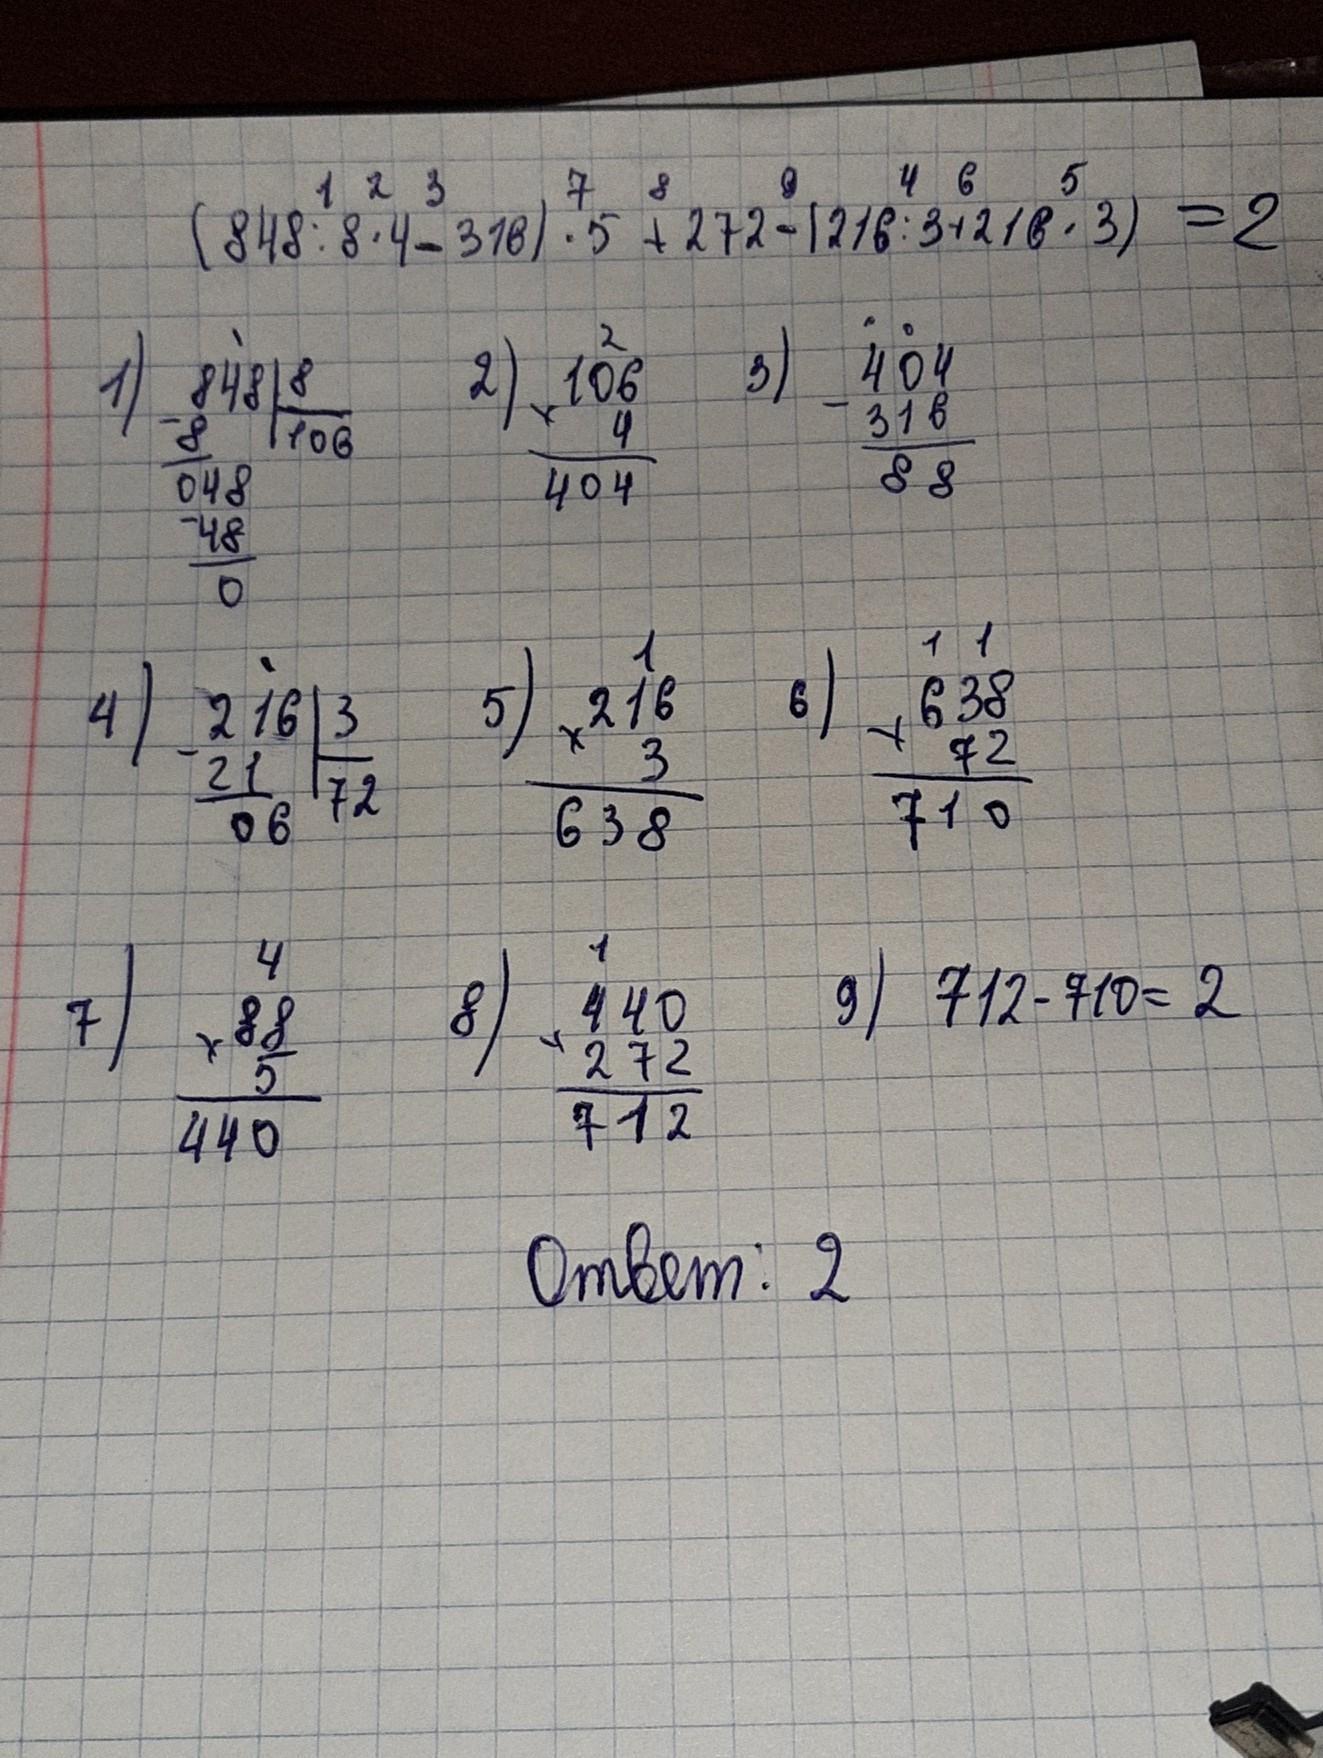 1 2 3 7 8 9 4 6 5
(848:8·4-316)·5+272-(216:3+216·3) = 2
1) 848 8 2) 2 3) 404
- 8 106 106 - 316
048 × 4 88
- 48 404
0
4) 216 3 5) 1 6) 1 1
- 21 72 216 638
06 × 3 + 72
638 710
7) 4 8) 1 9) 712-710=2
88 440
× 5 + 272
440 712
Ответ: 2